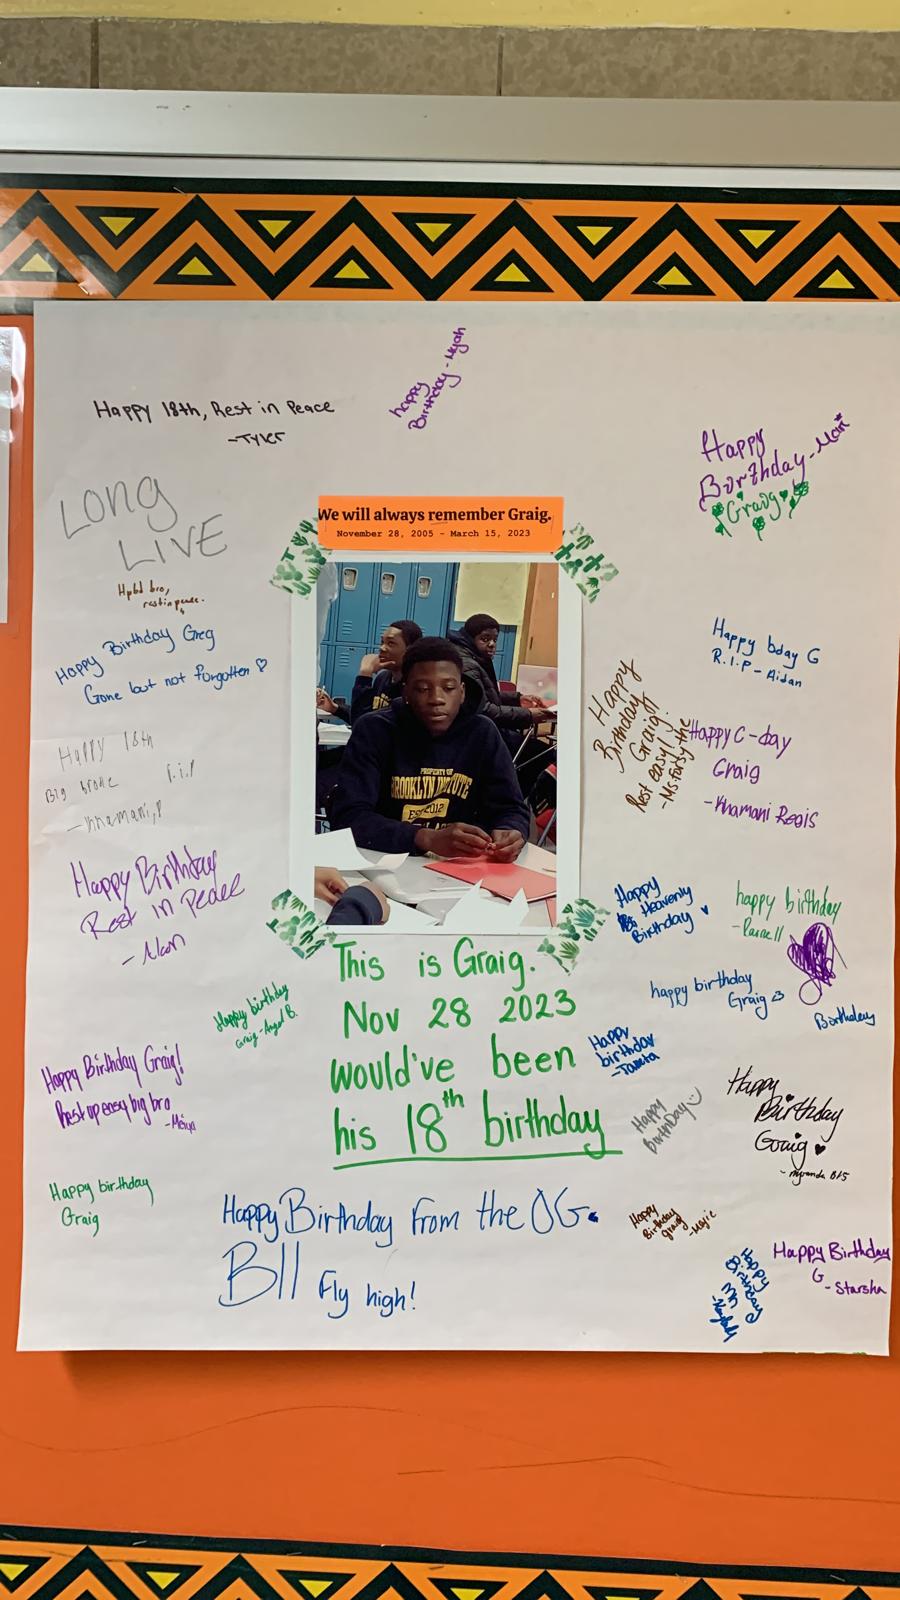 happy
Birthday - Myah
Happy 18th, Rest in Peace
-Tyler
Happy
Borthday-Mari*
Graig
LONG
LIVE
We will always remember Graig.
November 28, 2005 - March 15, 2023
Hpbd bro,
rest in peace.
Happy Birthday Greg
Gone but not forgotten ♡
Happy bday G
R.I.P - Aidan
Happy
Birthday
Graig!
Rest easy!
-Ms. Forsythe
Happy C-day
Graig
-Khamani Regis
Happy 18th
Big
r.i.p
-Khamani,P
PROPERTY OF
BROOKLYN INSTITUTE
EST 2012
Happy Birthday
Rest in Peace
-Alan
Happy
Heavenly
Birthday ♥
happy birthday
-Parnell
This is Graig.
Nov 28 2023
would've been
his 18th birthday
Happy birthday
Graig-Angel B.
happy birthday
Graig <3
Barthday
Happy
birthday
Happy Birthday Graig!
Rest up easy big bro
Happy
BirthDay
Happy
Birthday
Graig ♥
Happy birthday
Graig
Happy Birthday from the OG.
B11 Fly high!
Happy
Birthday
graig
Happy
Birthday
Happy Birthday
G
-Starsha